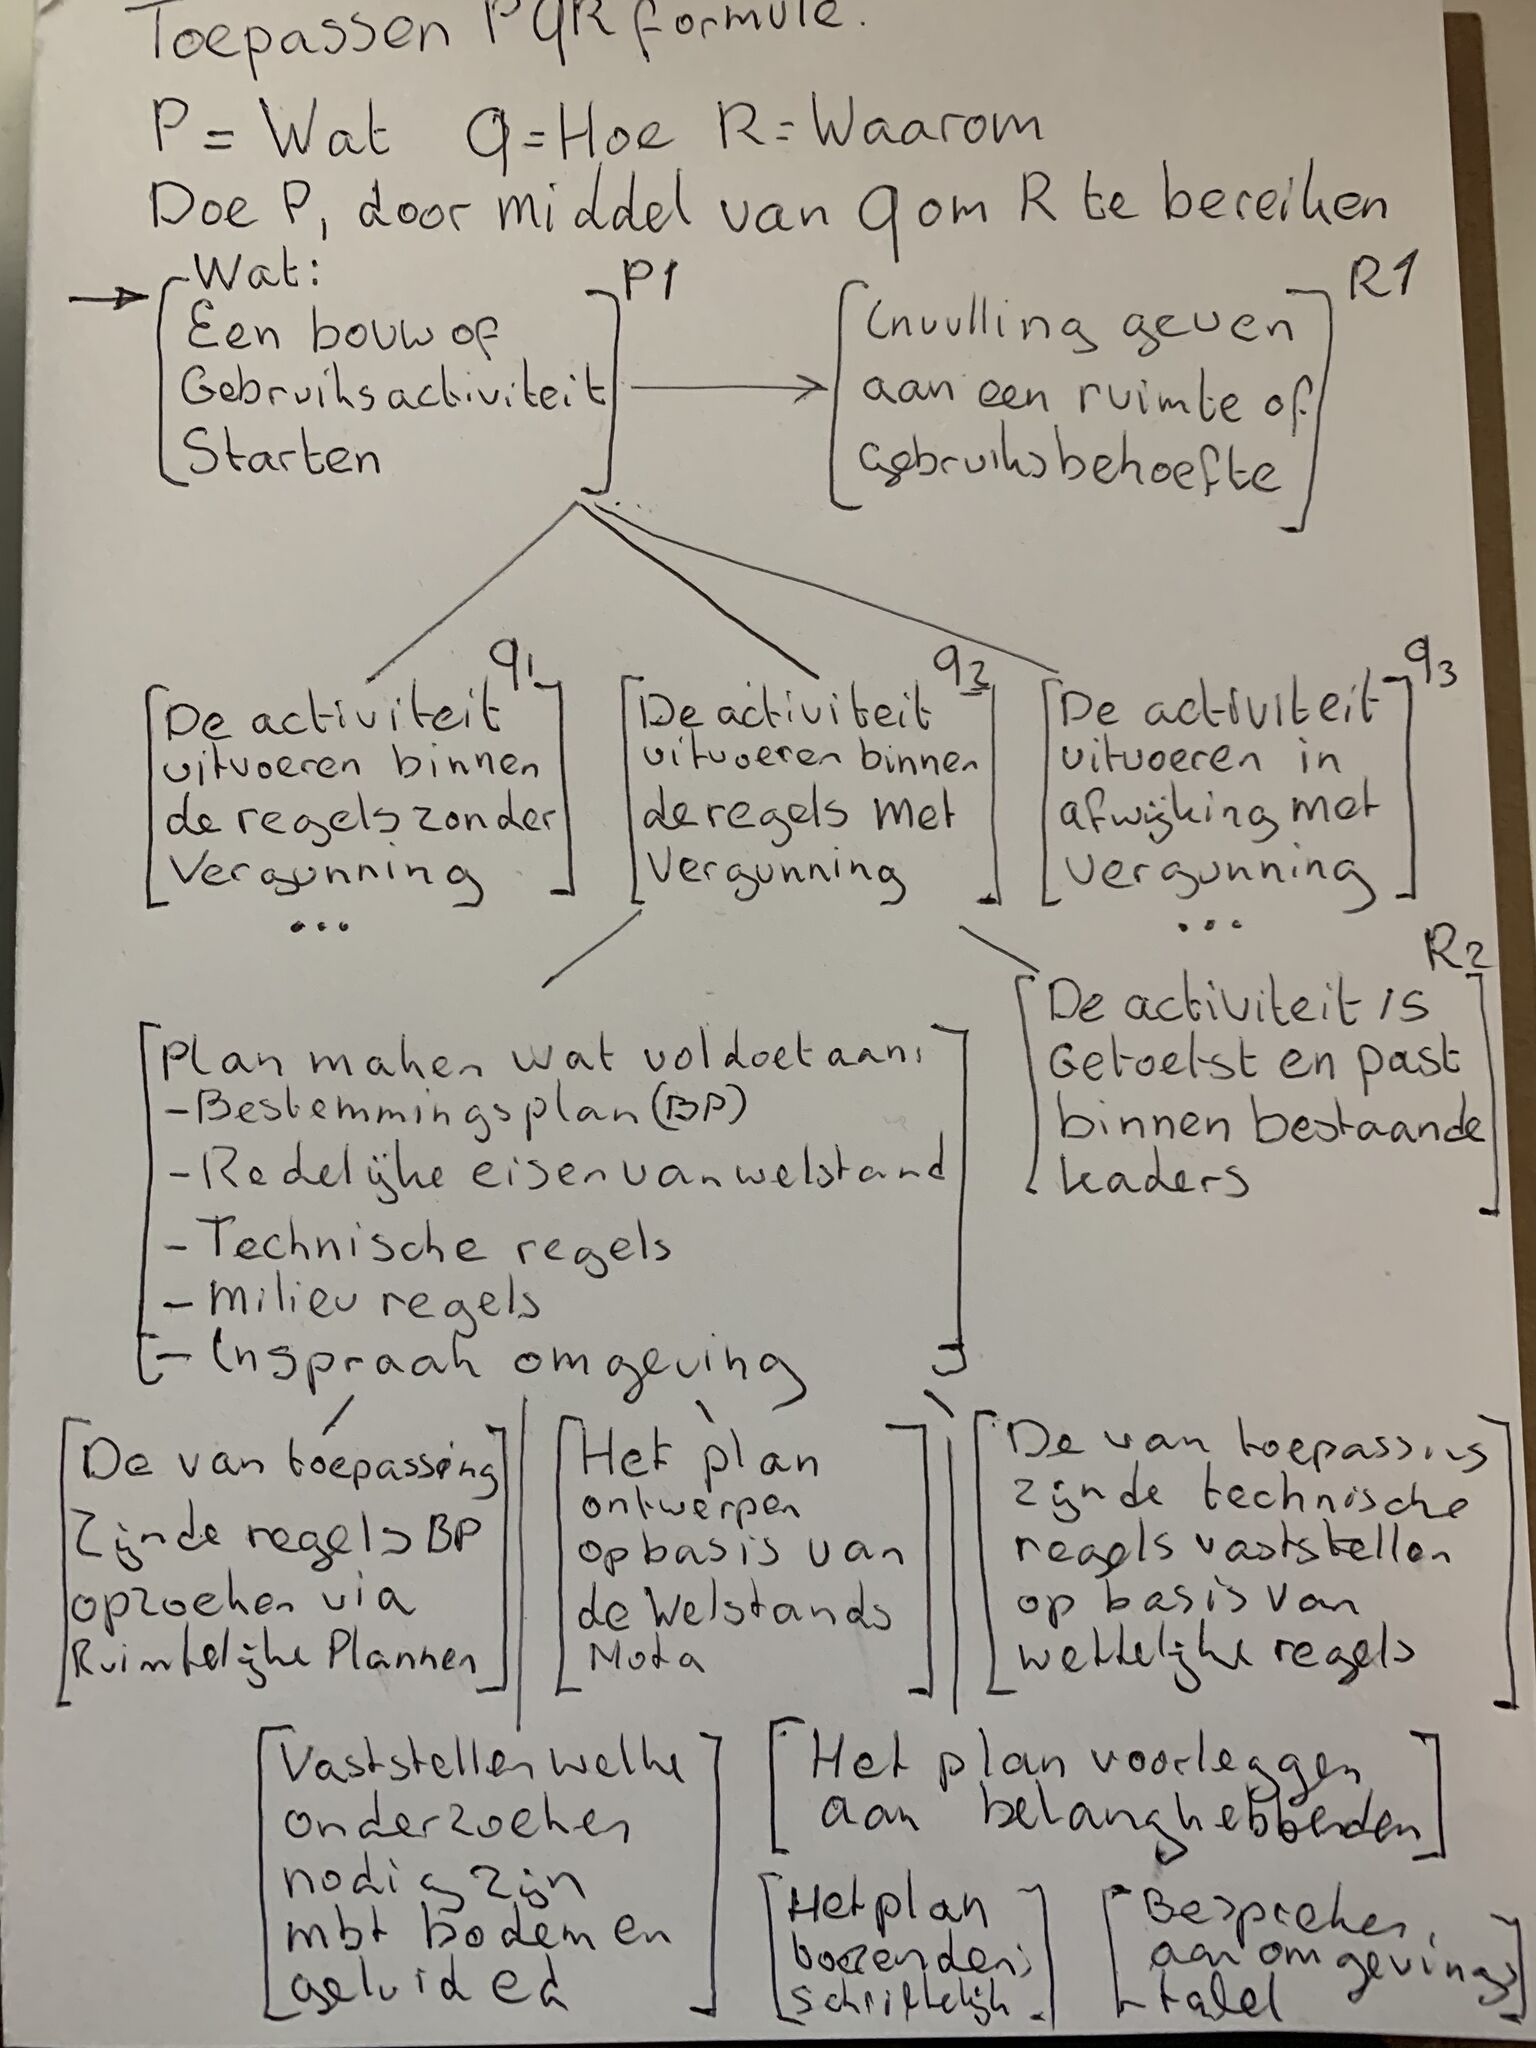 Toepassen PQR formule.
P = Wat q = Hoe R = Waarom
Doe P, door middel van q om R te bereiken
Wat:
P1
Een bouw of
Gebruiksactiviteit
Starten
R1
Invulling geven
aan een ruimte of
gebruiksbehoefte
q1
De activiteit
uitvoeren binnen
de regels zonder
Vergunning
...
q2
De activiteit
uitvoeren binnen
de regels met
Vergunning
q3
De activiteit
uitvoeren in
afwijking met
vergunning
...
R2
De activiteit is
Getoetst en past
binnen bestaande
kaders
Plan maken wat voldoet aan:
- Bestemmingsplan (BP)
- Redelijke eisen van welstand
- Technische regels
- milieu regels
- Inspraak omgeving
De van toepassing
Zijnde regels BP
opzoeken via
Ruimtelijke Plannen
Het plan
ontwerpen
op basis van
de Welstands
Nota
De van toepassing
zijnde technische
regels vaststellen
op basis van
wettelijke regels
Vaststellen welke
onderzoeken
nodig zijn
mbt bodem en
geluid ed
Het plan voorleggen
aan belanghebbenden
Het plan
schriftelijk
Bespreken
aan omgevings
tafel